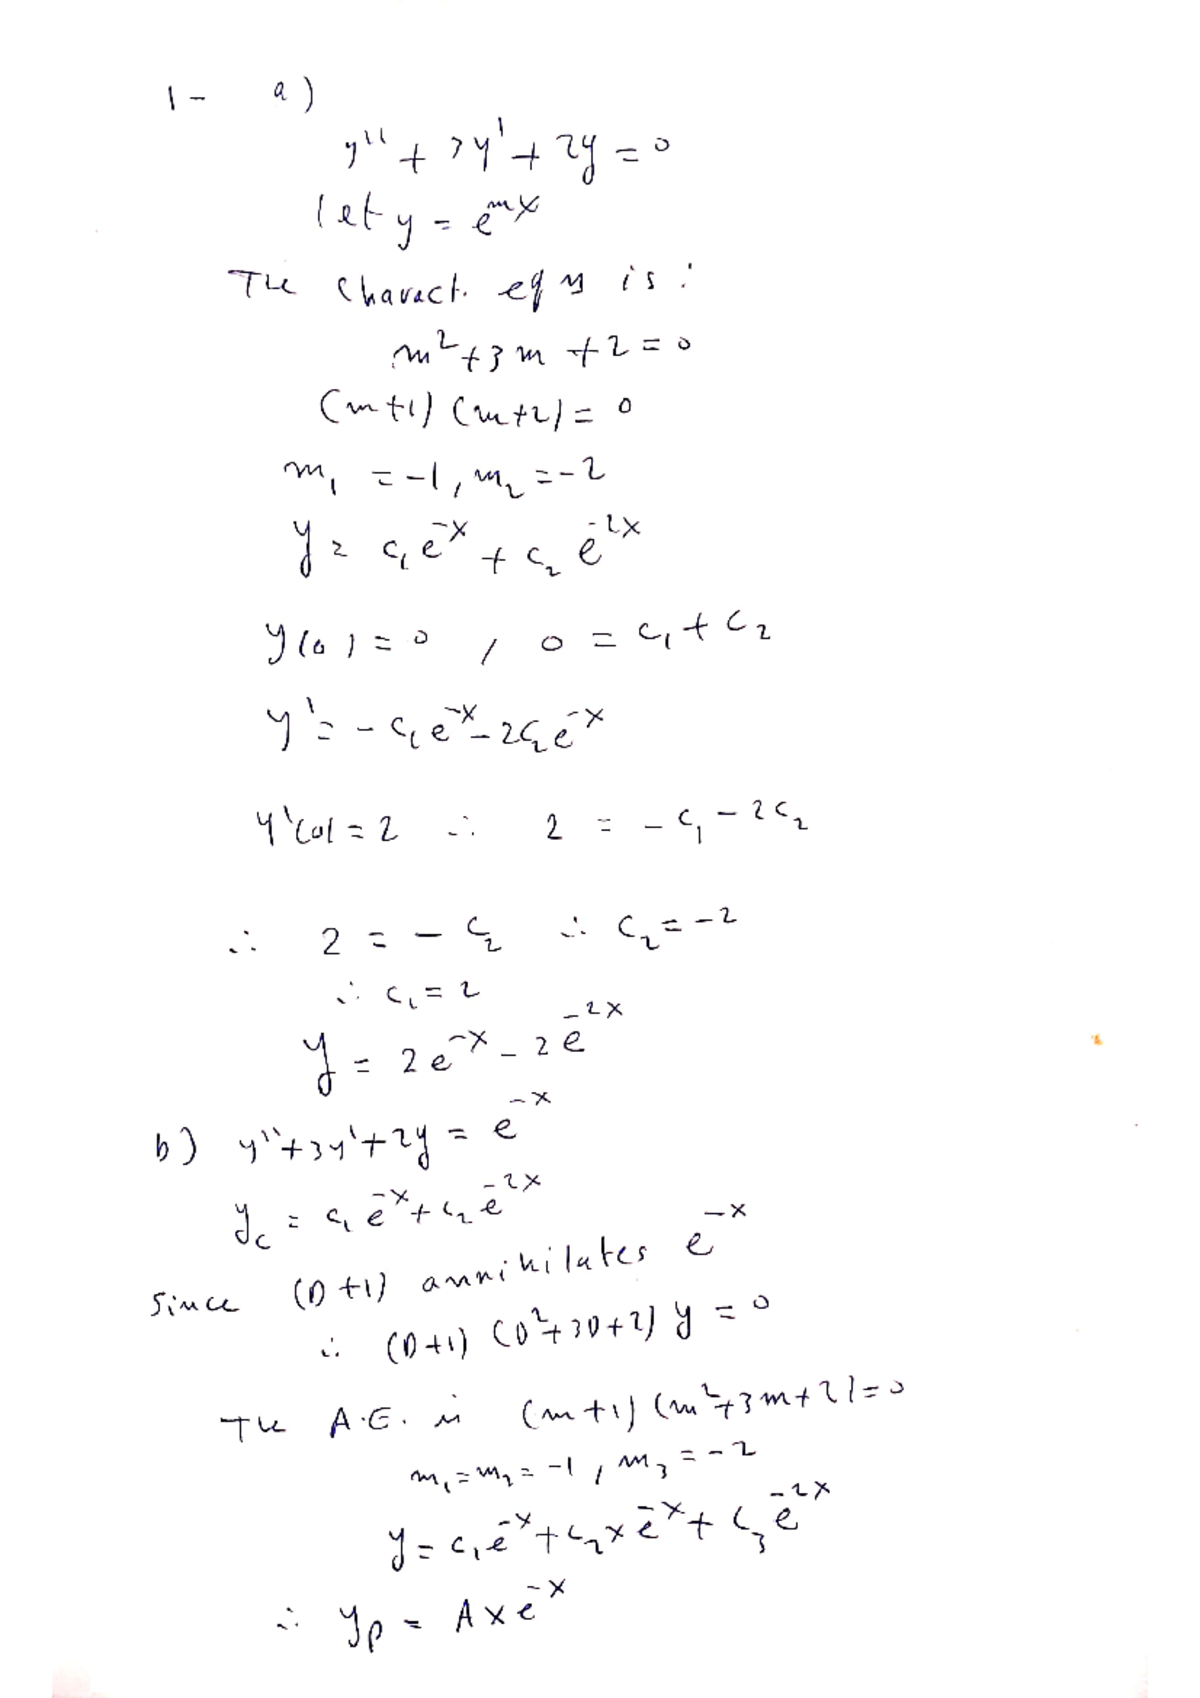 1- a)
y'' + 3y' + 2y = 0
let y = e^{mx}
The charact. eqn is:
m² + 3m + 2 = 0
(m+1) (m+2) = 0
m₁ = -1, m₂ = -2
y = c₁e^{-x} + c₂e^{-2x}
y(0) = 0 , 0 = c₁ + c₂
y' = -c₁e^{-x} - 2c₂e^{-x}
y'(0) = 2 ∴ 2 = -c₁ - 2c₂
∴ 2 = -c₂ ∴ c₂ = -2
∴ c₁ = 2
y = 2e^{-x} - 2e^{-2x}
b) y'' + 3y' + 2y = e^{-x}
y_c = c₁e^{-x} + c₂e^{-2x}
Since (D+1) annihilates e^{-x}
∴ (D+1) (D² + 3D + 2) y = 0
The A.E. is (m+1) (m² + 3m + 2) = 0
m₁ = m₂ = -1, m₃ = -2
y = c₁e^{-x} + c₂xe^{-x} + c₃e^{-2x}
∴ y_p = Axe^{-x}